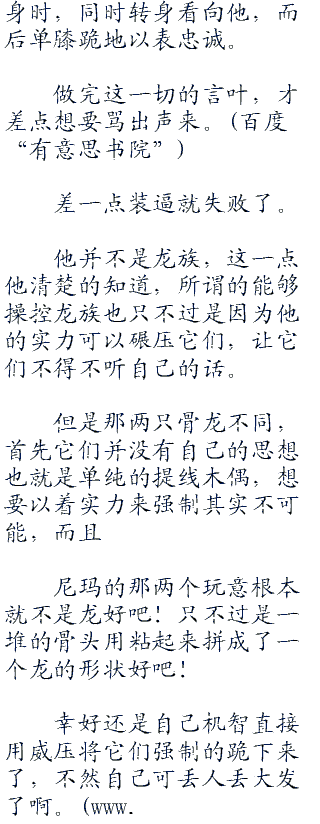 身时，同时转身看向他，而
后单膝跪地以表忠诚。
做完这一切的言叶，才
差点想要骂出声来。(百度
“有意思书院”)
差一点装逼就失败了。
他并不是龙族，这一点
他清楚的知道，所谓的能够
操控龙族也只不过是因为他
的实力可以碾压它们，让它
们不得不听自己的话。
但是那两只骨龙不同，
首先它们并没有自己的思想
也就是单纯的提线木偶，想
要以着实力来强制其实不可
能，而且
尼玛的那两个玩意根本
就不是龙好吧！只不过是一
堆的骨头用粘起来拼成了一
个龙的形状好吧！
幸好还是自己机智直接
用威压将它们强制的跪下来
了，不然自己可丢人丢大发
了啊。(www.